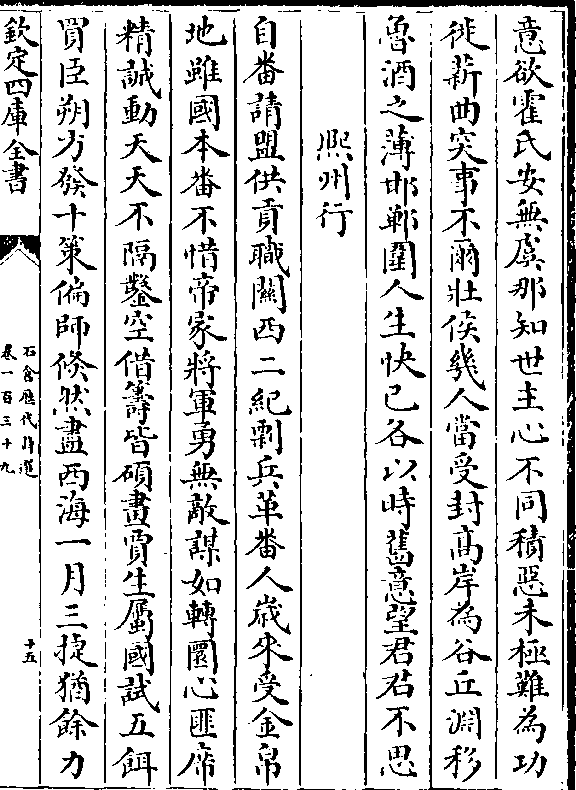 意欲霍氏安無虞那知世主心不同積惡未極難為功
徙薪曲突事不爾壯侯幾人當受封高岸為谷丘淵移
魯酒之薄邯鄲圍人生快已各以時舊意望君君不思
熈州行
自畨請盟供貢職關西二紀剽兵革畨人歲來受金帛
地雖國本畨不惜帝家將軍勇無敵謀如轉圜心匪席
精誠動天天不隔鑿空借籌皆碩畫賈生屬國試五餌
買臣朔方發十策偏師倐然盡西海一月三捷猶餘力
欽定四庫全書
石倉歷代詩選
卷一百三十九
十五